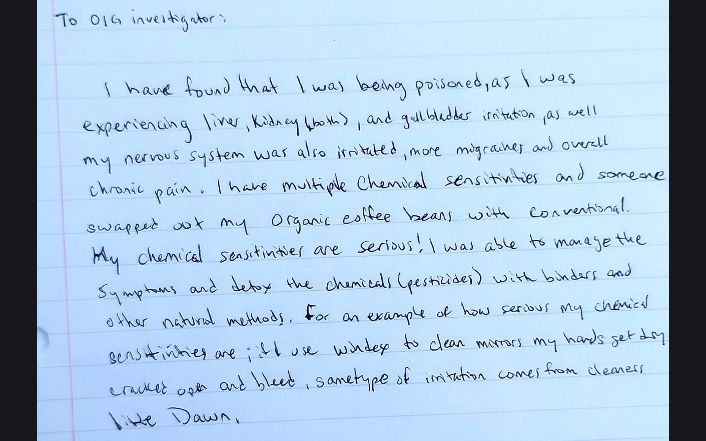 To OIG investigator:
I have found that I was being poisoned, as I was
experiencing liver, Kidney (both), and gallbladder irritation, as well
my nervous system was also irritated, more migraines and overall
chronic pain. I have multiple Chemical sensitivities and someone
swapped out my Organic coffee beans with conventional.
My chemical sensitivities are serious! I was able to manage the
symptoms and detox the chemicals (pesticides) with binders and
other natural methods. For an example of how serious my chemical
sensitivities are; if I use windex to clean mirrors my hands get dry
cracked open and bleed, same type of irritation comes from cleaners
like Dawn.